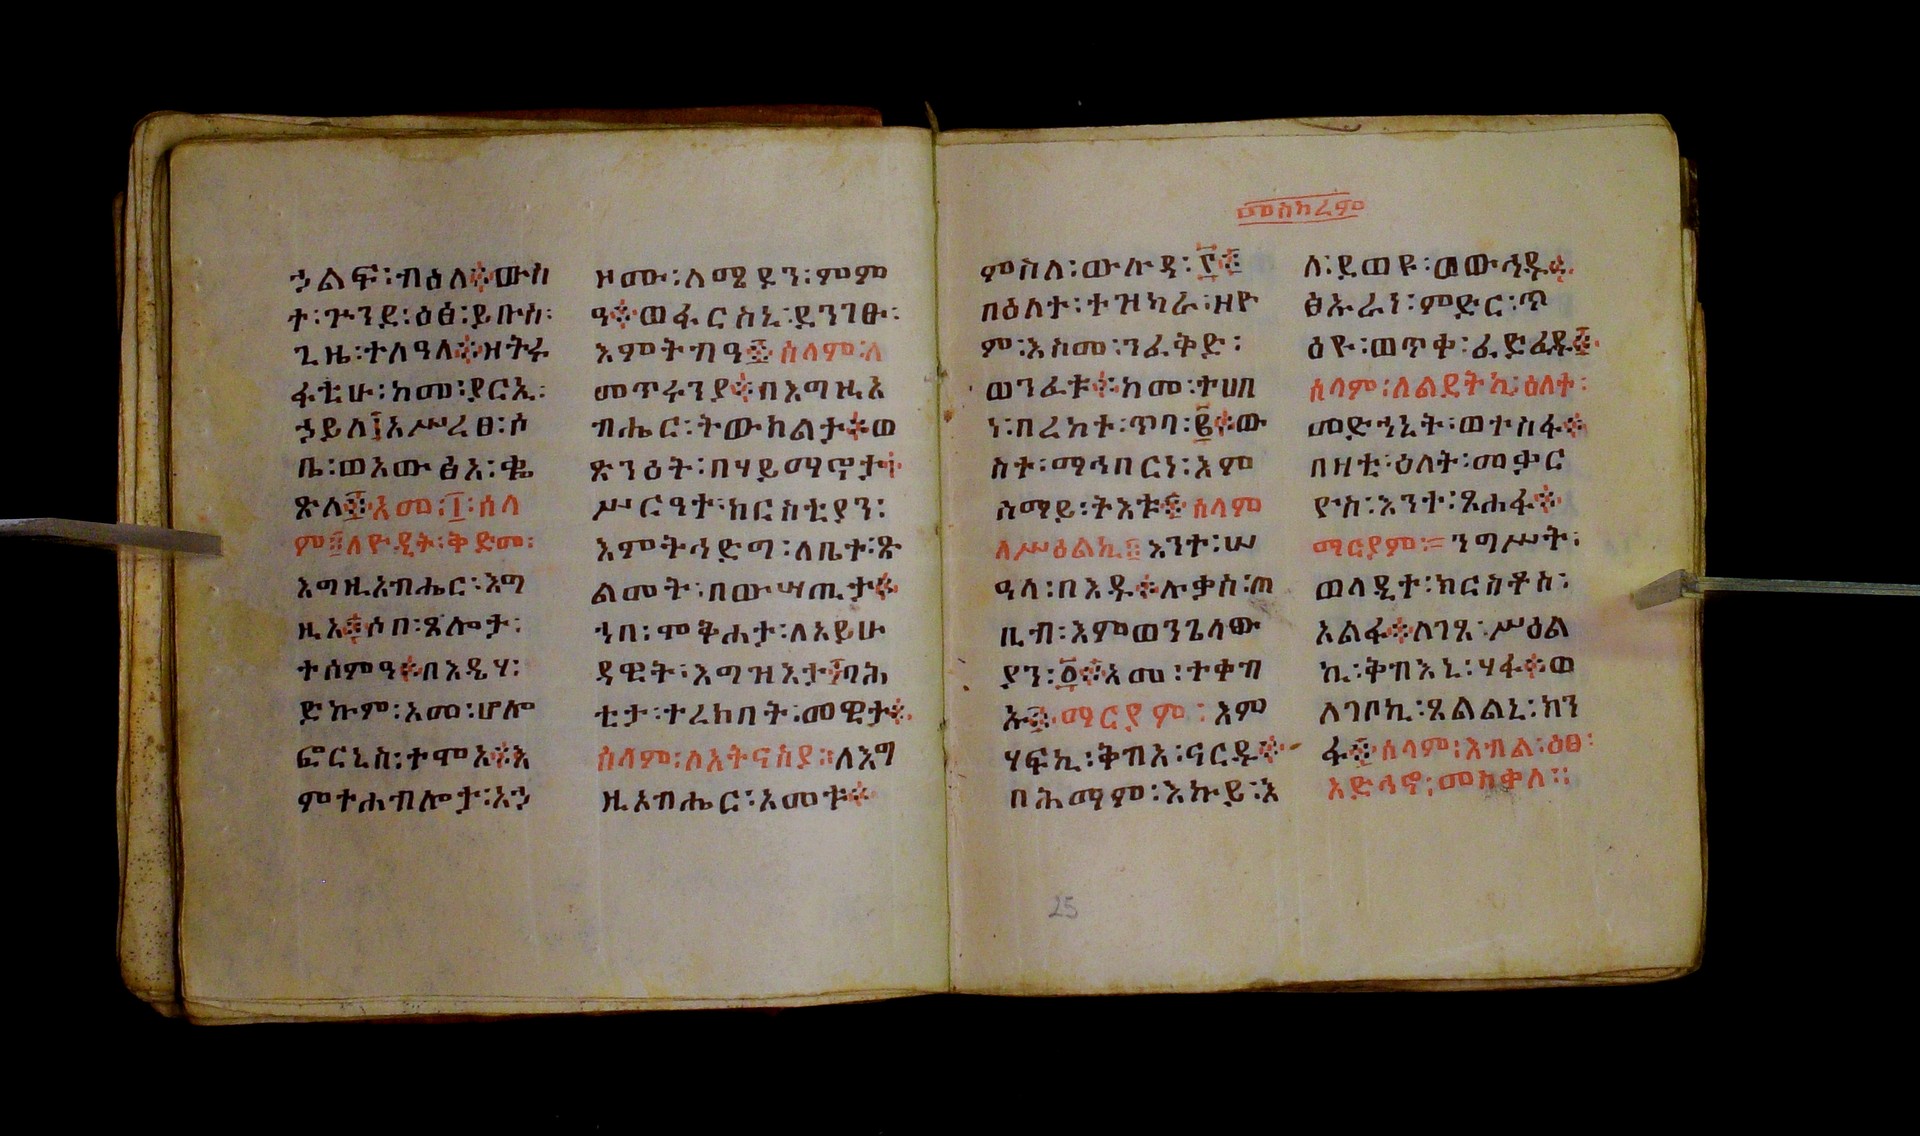 ኃልፍ፡ብዕለ፨ውስ
ተ፡ጕንደ፡ዕፅ፡ይቡስ፡
ጊዜ፡ተለዓለ፨ዝትሩ
ፋቲሁ፡ከመ፡ያርኢ፡
ኃይለ፤አሥረፀ፡ሶ
ቤ፡ወአውፅአ፡ቈ
ጽለ፨አመ፡፲፡ሰላ
ም፡ለዮዲት፡ቅድመ፡
እግዚአብሔር፡እግ
ዚአ፨ሶበ፡ጸሎታ፡
ተሰምዓ፨በእዴሃ፡
ድኩም፡አመ፡ሆሎ
ፎርኒስ፡ተሞአ፨እ
ምተሐብሎታ፡አኃ
ዞሙ፡ለሜዶን፡ምም
ዓ፨ወፋርስኒ፡ደንገፁ፡
እምትብዓ፨ሰላም፡ለ
መጥሩንያ፨በእግዚአ
ብሔር፡ትውክልታ፨ወ
ጽንዕት፡በሃይማኖታ፨
ሥርዓተ፡ክርስቲያን፡
እምትኅድግ፡ለቤተ፡ጽ
ልመት፡በውሣጢታ፨
ኀበ፡ሞቅሐታ፡ለአይሁ
ዳዊት፡እግዝእታ፤ባሕ
ቲታ፡ተረክበት፡መዊታ፨
ሰላም፡ለአትናስያ፡ለእግ
ዚአብሔር፡አመቱ፨
መስከረም
ምስለ፡ውሉዳ፡፫፨
በዕለተ፡ተዝካራ፡ዘዮ
ም፡እስመ፡ንፈቅድ፡
ወንፈቱ፨ከመ፡ተሀበ
ነ፡በረከተ፡ጥባ፡፪፨ው
ስተ፡ማኅበርነ፡እም
ሰማይ፡ትእቱ፨ሰላም
ለሥዕልኪ፡እንተ፡ሠ
ዓላ፡በእዱ፨ሉቃስ፡ጠ
ቢብ፡እምወንጌላው
ያን፡፬፨አመ፡ተቀብ
ኡ፨ማርያም፡እም
ሃፍኪ፡ቅብአ፡ናርዱ፨
በሕማም፡እኩይ፡እ
ለ፡ደወዩ፡ወውኅዱ፨
ፅኡራን፡ምድር፡ጥ
ዕዮ፡ወጥቀ፡ፈድፈዱ፨
ሰላም፡ለልደትኪ፡ዕለተ፡
መድኀኒት፡ወተስፋ፨
በዛቲ፡ዕለት፡መቃር
ዮስ፡እንተ፡ጸሐፋ፨
ማርያም፡ንግሥት፡
ወላዲተ፡ክርስቶስ፡
አልፋ፨ለገጸ፡ሥዕል
ኪ፡ቅብእኒ፡ሃፋ፨ወ
ለገቦኪ፡ጸልልኒ፡ክን
ፋ፨ሰላም፡እብል፡ዕፀ፡
አድኅኖ፡መስቀለ፡፡
25